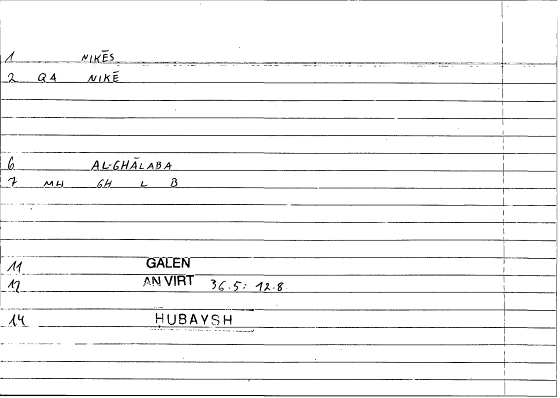 1 NIKĒS
2 QA NIKĒ
6 AL-GHĀLABA
7 MH GH L B
11 GALEN
12 AN VIRT 36.5: 12.8
14 HUBAYSH